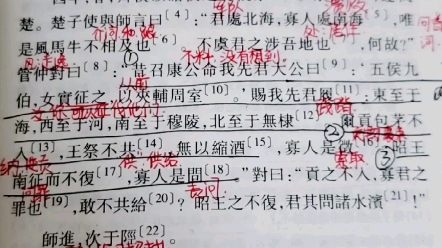 楚。楚子使與師言曰[4]：“君處北海，寡人處南海[5]，唯
是風馬牛不相及也[6]，不虞君之涉吾地也[7]，何故？”
管仲對曰[8]：“昔召康公命我先君大公曰[9]：‘五侯九
伯，女實征之，以夾輔周室[10]。’賜我先君履[11]：東至于
海，西至于河，南至于穆陵，北至于無棣[12]。爾貢包茅不
入[13]，王祭不共[14]，無以縮酒[15]，寡人是徵[16]；昭王
南征而不復[17]，寡人是問[18]。”對曰：“貢之不入，寡君之
罪也[19]，敢不共給[20]？昭王之不復，君其問諸水濱[21]！”
師進，次于陘[22]。